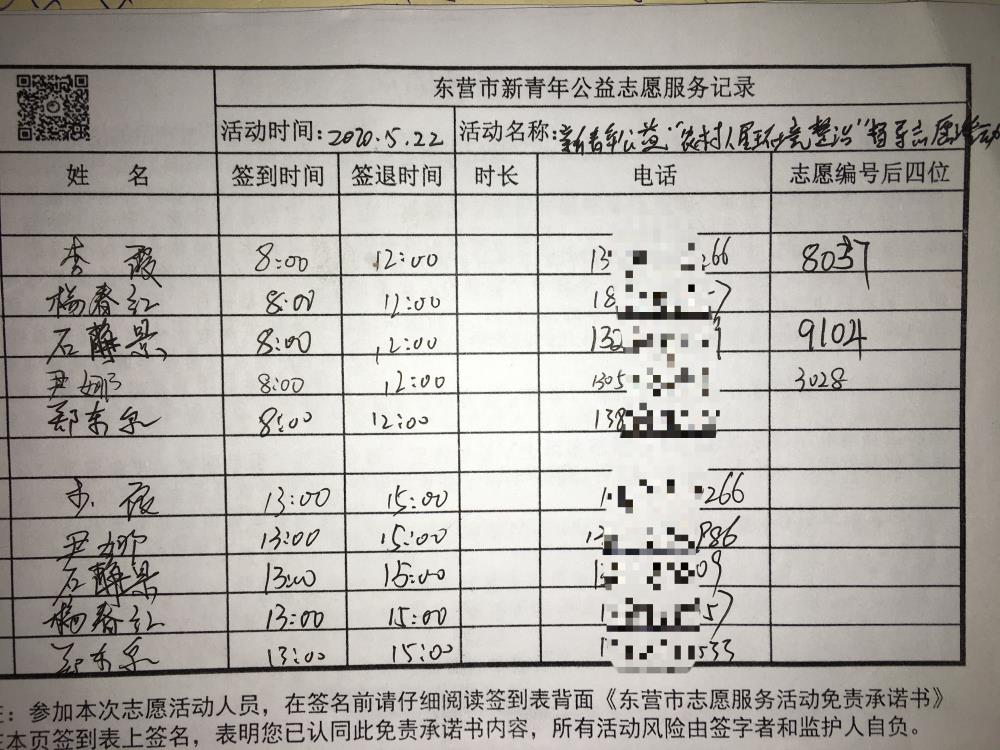 东营市新青年公益志愿服务记录
活动时间:2020.5.22 活动名称:新青年公益“农村人居环境整治”督导志愿活动
姓 名 签到时间 签退时间 时长 电话 志愿编号后四位
李霞 8:00 12:00 13 266 8037
杨春红 8:00 12:00 18 7
石静景 8:00 12:00 132 9104
尹娜 8:00 12:00 1305 3028
郑东 8:00 12:00 138
李霞 13:00 15:00 1 266
尹娜 13:00 15:00 13 986
石静景 13:00 15:00 1 09
杨春红 13:00 15:00 1 57
郑东 13:00 15:00 1 533
:参加本次志愿活动人员，在签名前请仔细阅读签到表背面《东营市志愿服务活动免责承诺书》
在本页签到表上签名，表明您已认同此免责承诺书内容，所有活动风险由签字者和监护人自负。